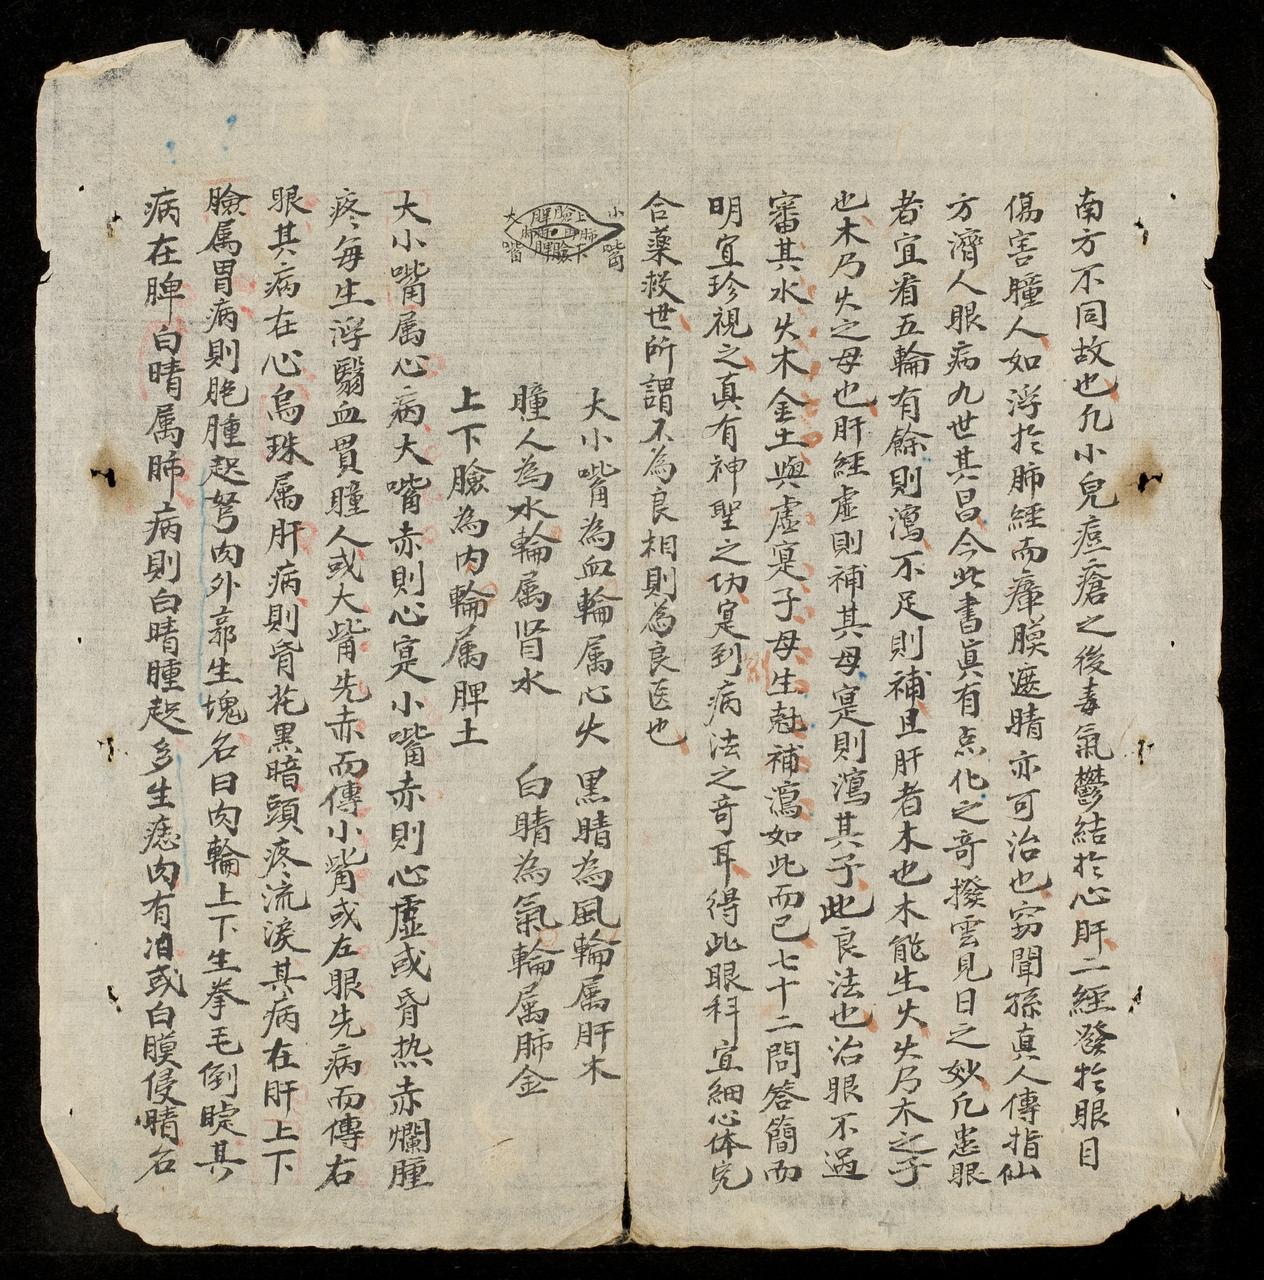 南方不同故也凢小兒痘瘡之後毒氣鬱結於心肝二經發於眼目
傷害瞳人如浮於肺經而瘴膜遮睛亦可治也窃聞孫真人傳指仙
方濟人眼病九世其昌今此書真有点化之竒撥雲見日之妙凢患眼
者宜看五輪有餘則瀉不足則補且肝者木也木能生火火乃木之子
也木乃火之母也肝經虛則補其母寔則瀉其子此良法也治眼不過
審其水火木金土與虛寔子母生尅補瀉如此而已七十二問答簡而
明宜珍視之真有神聖之功寔到病法之竒耳得此眼科宜細心体究
別
合藥救世所謂不為良相則為良医也
小嘴
大嘴
上下
臉
脾
肺
大小嘴為血輪属心火 黒睛為風輪属肝木
瞳人為水輪属肾水 白睛為氣輪属肺金
上下臉為肉輪属脾土
大小嘴属心病大嘴赤則心寔小嘴赤則心虛或昏热赤爛腫
疼每生浮翳血貫瞳人或大嘴先赤而傳小嘴或左眼先病而傳右
眼其病在心烏珠属肝病則昏花黒暗頭疼流淚其病在肝上下
臉属胃病則胞腫起弩肉外弇生塊名曰肉輪上下生拳毛倒睫其
病在脾白睛属肺病則白睛腫起多生瘜肉有泪或白膜侵睛名